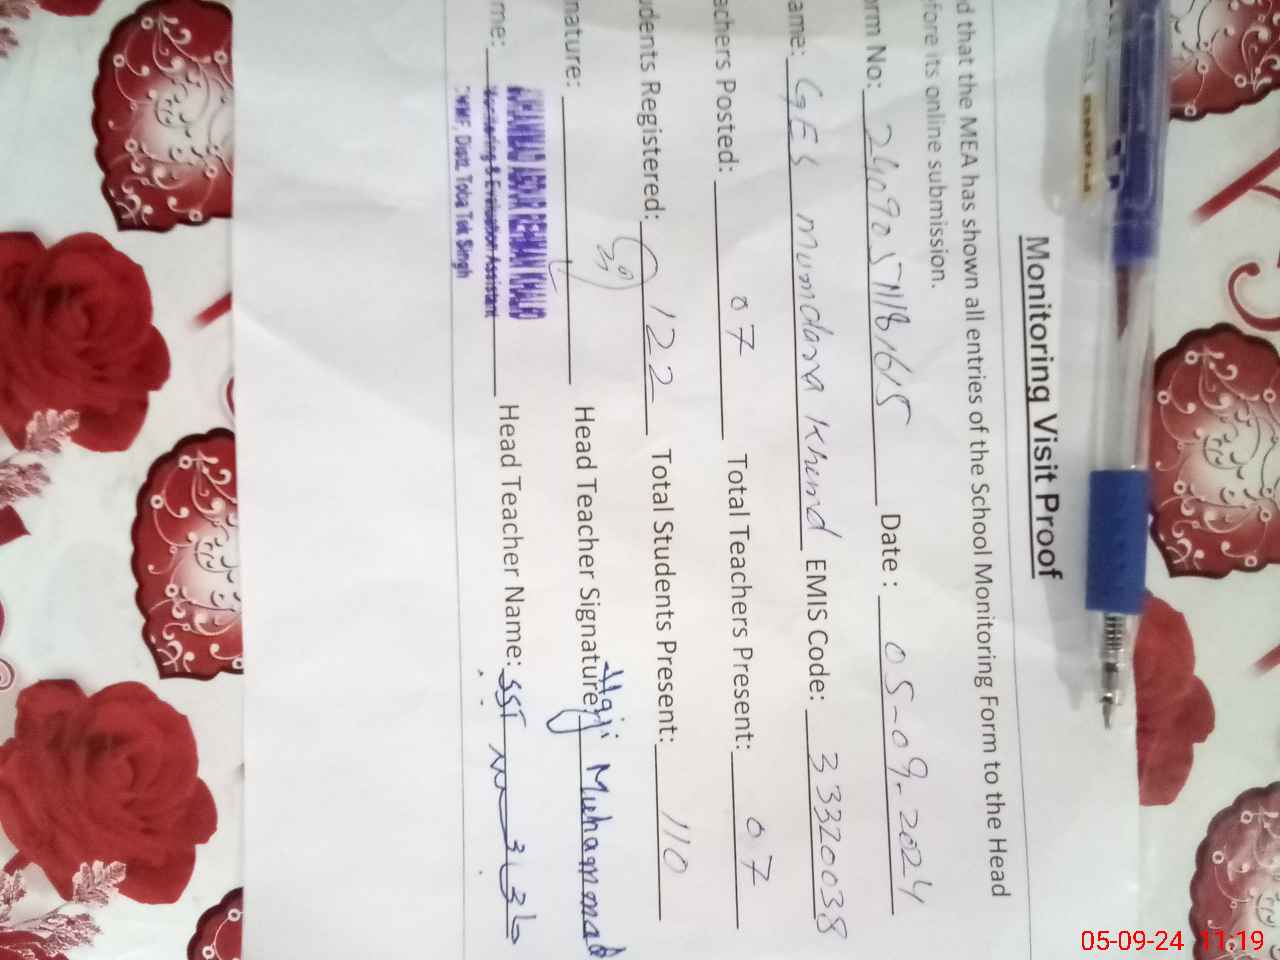 Monitoring Visit Proof
d that the MEA has shown all entries of the School Monitoring Form to the Head
fore its online submission.
rm No: 240905N181615 Date : 05-09-2024
ame: GES Mundara Khurd EMIS Code: 33320038
achers Posted: 07 Total Teachers Present: 07
udents Registered: 122 Total Students Present: 110
nature: Head Teacher Signature: Haji Muhammad
me: Head Teacher Name: SST
Monitoring & Evaluation Assistant
Distt. Toba Tek Singh
05-09-24 11:19